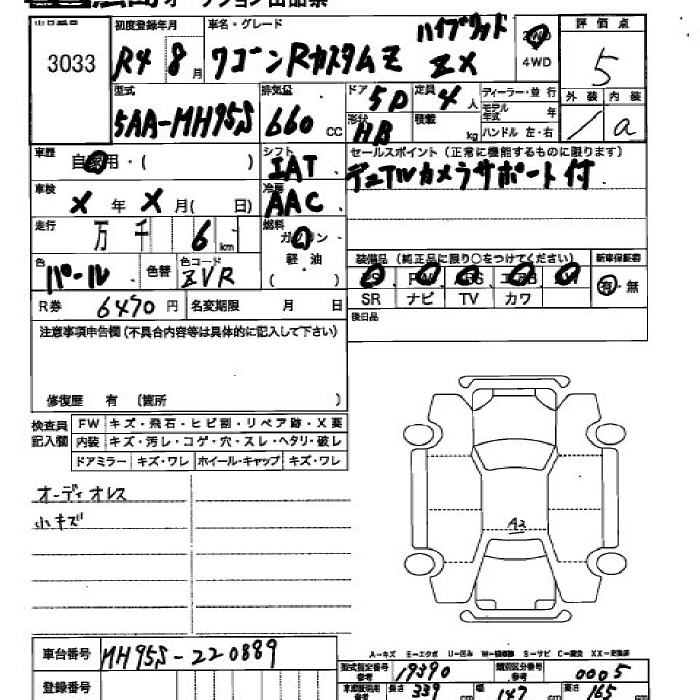 オークション出品票
出品番号 初度登録年月 車名・グレード ハイブリッド 評価点
3033 R4 8月 ワゴンRカスタムZ ZX 2WD 4WD 5
型式 排気量 ドア 5D 定員 4人 ディーラー・並行 外装 内装
5AA-MH95S 660cc 形状 HB 積載 kg モデル年式 年 ハンドル 左・右 / a
車歴 自家用・( ) シフト IAT セールスポイント (正常に機能するものに限ります)
車検 X年 X月( 日) 冷房 AAC デュアルカメラサポート付
走行 万 千 6km 燃料 ガソリン 軽油 ( )
装備品 (純正品に限り○をつけてください) 新車保証書
色 パール 色替 色コード ZVR SR ナビ TV カワ 有・無
R券 6470円 名変期限 月 日 後日品
注意事項申告欄 (不具合内容等は具体的に記入して下さい)
修復歴 有 (箇所
検査員記入欄 FW キズ・飛石・ヒビ割・リペア跡・X要
内装 キズ・汚レ・コゲ・穴・スレ・ヘタリ・破レ
ドアミラー キズ・ワレ ホイール・キャップ キズ・ワレ
オーディオレス
小キズ
A2
A-キズ E-エクボ U-凹み W-補修跡 S-サビ C-腐食 XX-交換済
車台番号 MH95S-220889
型式指定番号 参考 19390 類別区分番号 参考 0005
登録番号 車庫証明用 参考 長さ 339cm 幅 147cm 高さ 165cm